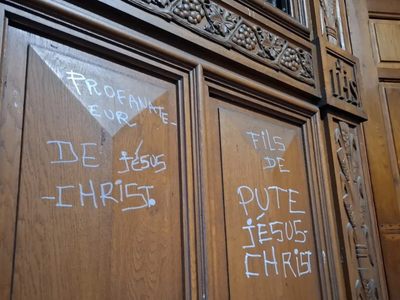 PROFANATE-
EUR
DE JÉSUS
-CHRIST.
FILS
DE
PUTE
JÉSUS-
CHRIST
IHS